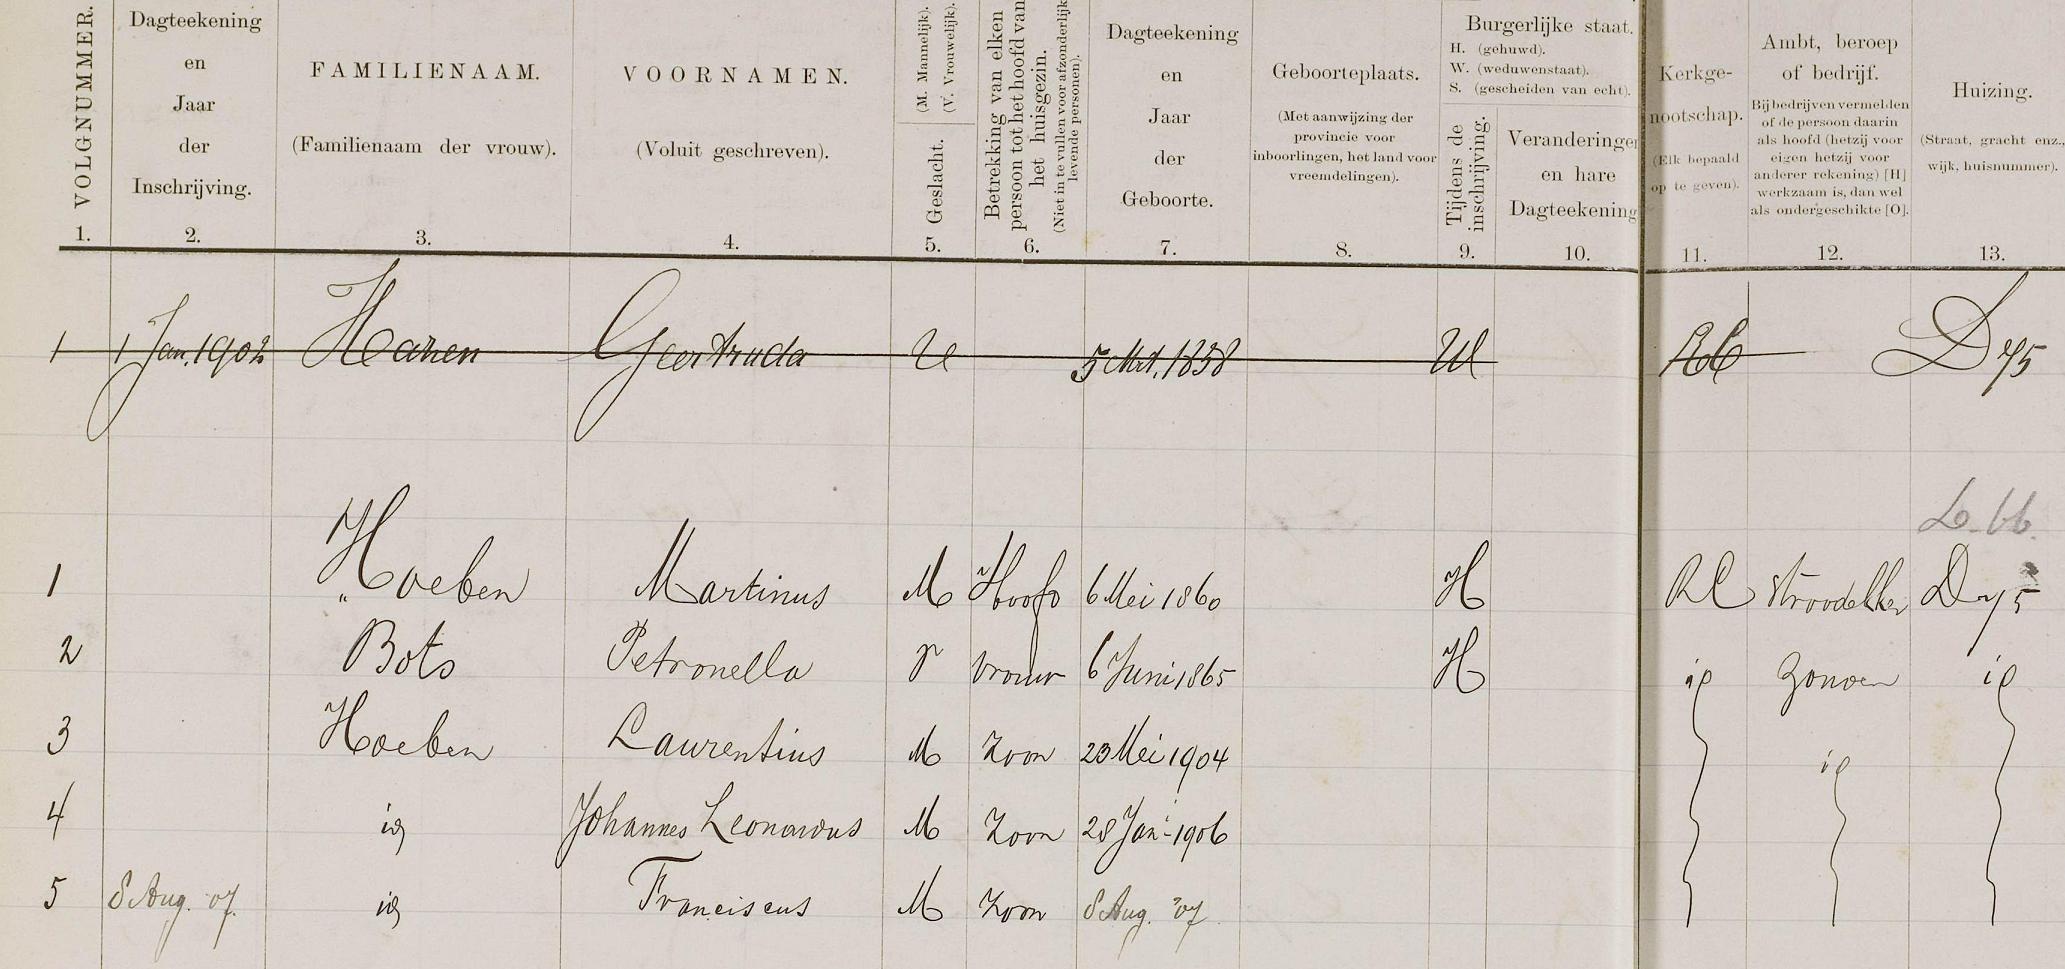 VOLGNUMMER.
1.
Dagteekening
en
Jaar
der
Inschrijving.
2.
FAMILIENAAM.
(Familienaam der vrouw).
3.
VOORNAMEN.
(Voluit geschreven).
4.
(M. Mannelijk).
(V. Vrouwelijk).
Geslacht.
5.
Betrekking van elken
persoon tot het hoofd van
het huisgezin.
(Niet in te vullen voor afzonderlijk
levende personen).
6.
Dagteekening
en
Jaar
der
Geboorte.
7.
Geboorteplaats.
(Met aanwijzing der
provincie voor
inboorlingen, het land voor
vreemdelingen).
8.
Burgerlijke staat.
H. (gehuwd).
W. (weduwenstaat).
S. (gescheiden van echt).
Tijdens de
inschrijving.
9.
Veranderingen
en hare
Dagteekening
10.
Kerkge-
nootschap.
(Elk bepaald
op te geven).
11.
Ambt, beroep
of bedrijf.
Bij bedrijven vermelden
of de persoon daarin
als hoofd (hetzij voor
eigen hetzij voor
anderer rekening) [H]
werkzaam is, dan wel
als ondergeschikte [O].
12.
Huizing.
(Straat, gracht enz.,
wijk, huisnummer).
13.
1 1 Jan. 1902 Hanen Geertruda V 5 Mrt. 1838 W RC D 75
D. 66.
1 Hoeben Martinus M Hoofd 6 Mei 1860 H RC stroodekker D 75
2 Bots Petronella V vrouw 6 Juni 1865 H id zonder id
3 Hoeben Laurentius M Zoon 23 Mei 1904 id
4 id Johannes Leonardus M Zoon 28 Jan. 1906
5 8 Aug. 07. id Franciscus M Zoon 8 Aug. '07